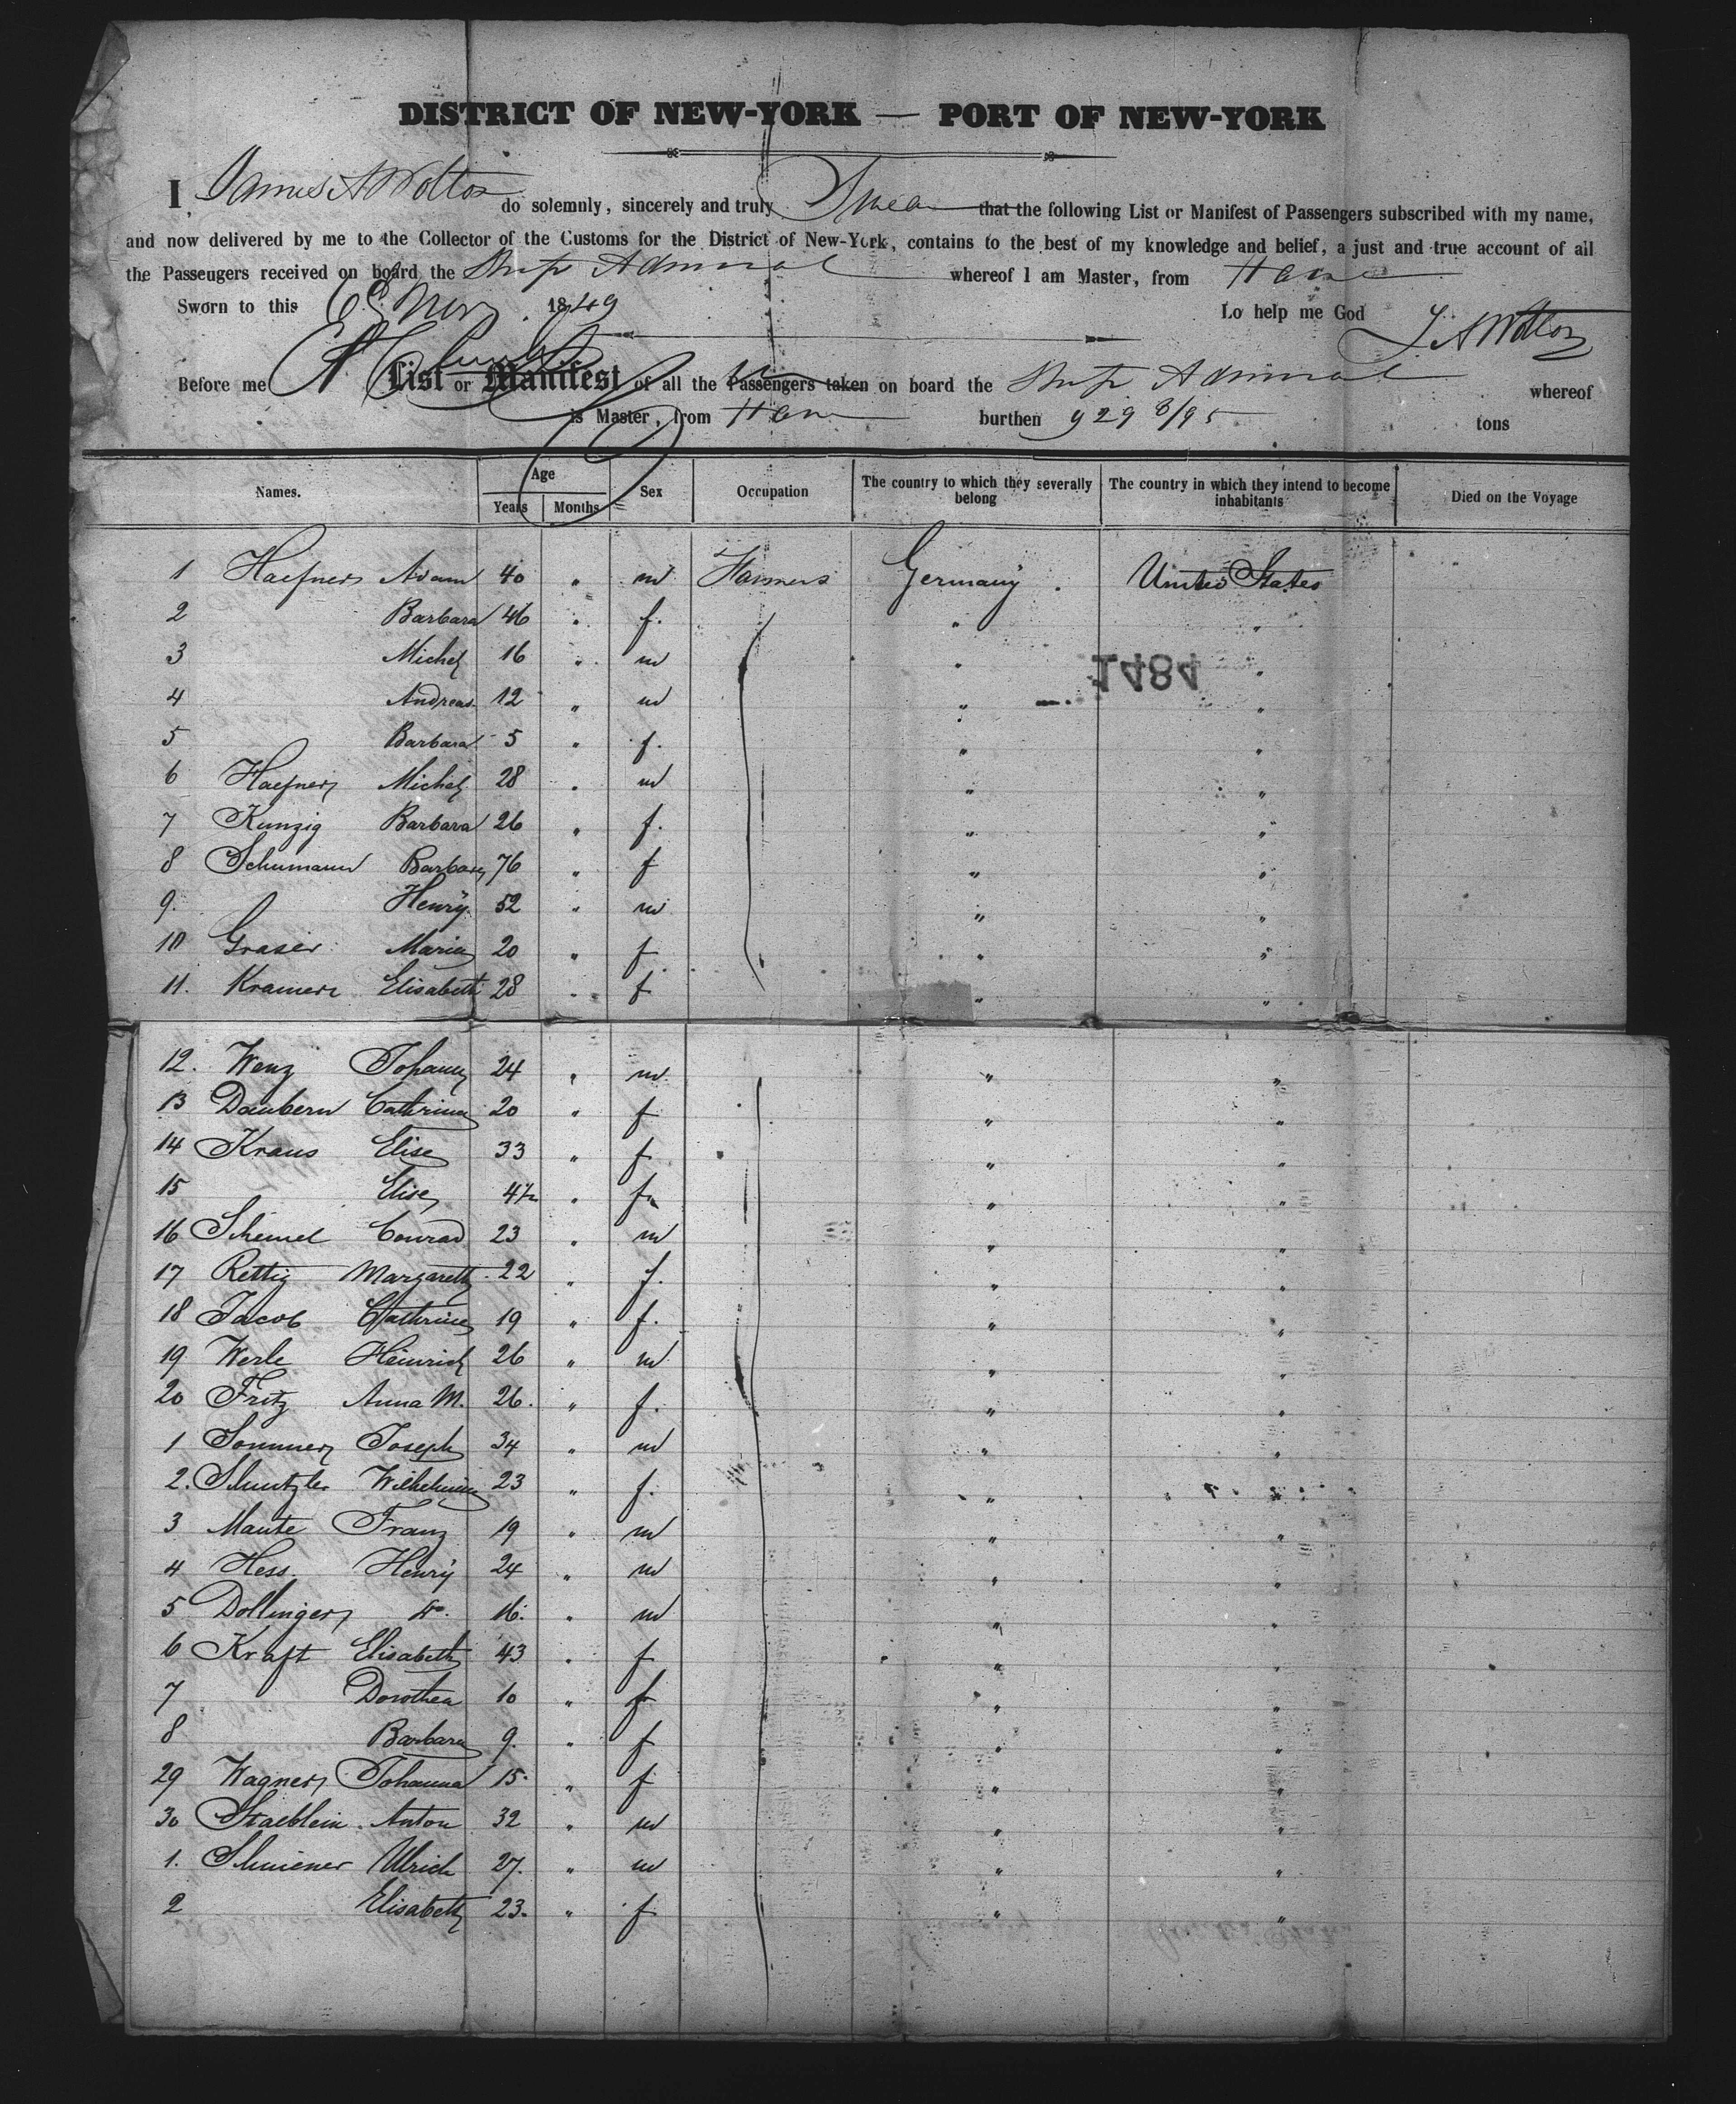 DISTRICT OF NEW-YORK — PORT OF NEW-YORK
I, James A Wotton do solemnly, sincerely and truly Swear that the following List or Manifest of Passengers subscribed with my name,
and now delivered by me to the Collector of the Customs for the District of New-York, contains to the best of my knowledge and belief, a just and true account of all
the Passengers received on board the Ship Admiral whereof I am Master, from Havre
Sworn to this Nov 1849 So help me God J A Wotton
Before me List or Manifest of all the Passengers taken on board the Ship Admiral whereof
is Master, from Havre burthen 929 8/95 tons
Names. Age Years Months Sex Occupation The country to which they severally belong The country in which they intend to become inhabitants Died on the Voyage
1 Haefner Adam 40 " m Farmers Germany . United States
2 Barbara 46 " f. " "
3 Michel 16 " m " "
1484
4 Andreas 12 " m " "
5 Barbara 5 " f. " "
6 Haefner Michel 28 " m " "
7 Kunzig Barbara 26 " f. " "
8 Schumann Barbara 76 " f " "
9. Henry 52 " m " "
10 Graser Maria 20 " f " "
11. Kramer Elisabeth 28 " f " "
12. Wenz Johann 24 " m " "
13 Daubern Cathrina 20 " f " "
14 Kraus Elise 33 " f " "
15 Elise " f " "
16 Schemel Conrad 23 " m " "
17 Rettig Margareth 22 " f. " "
18 Jacob Cathrine 19 " f. " "
19 Werle Heinrich 26 " m " "
20 Fritz Anna M. 26. " f. " "
1 Sommer Joseph 34 " m " "
2. Wilhelmina 23 " f. " "
3 Maute Franz 19 " m " "
4 Hess Henry 24 " m " "
5 Dollinger do. 16. " m " "
6 Kraft Elisabeth 43 " f " "
7 Dorothea 10 " f " "
8 Barbara 9. " f " "
29 Wagner Johanna 15. " f " "
30 Staeblein Anton 32 " m " "
1. Ulrich 27. " m " "
2 Elisabeth 23. " f " "